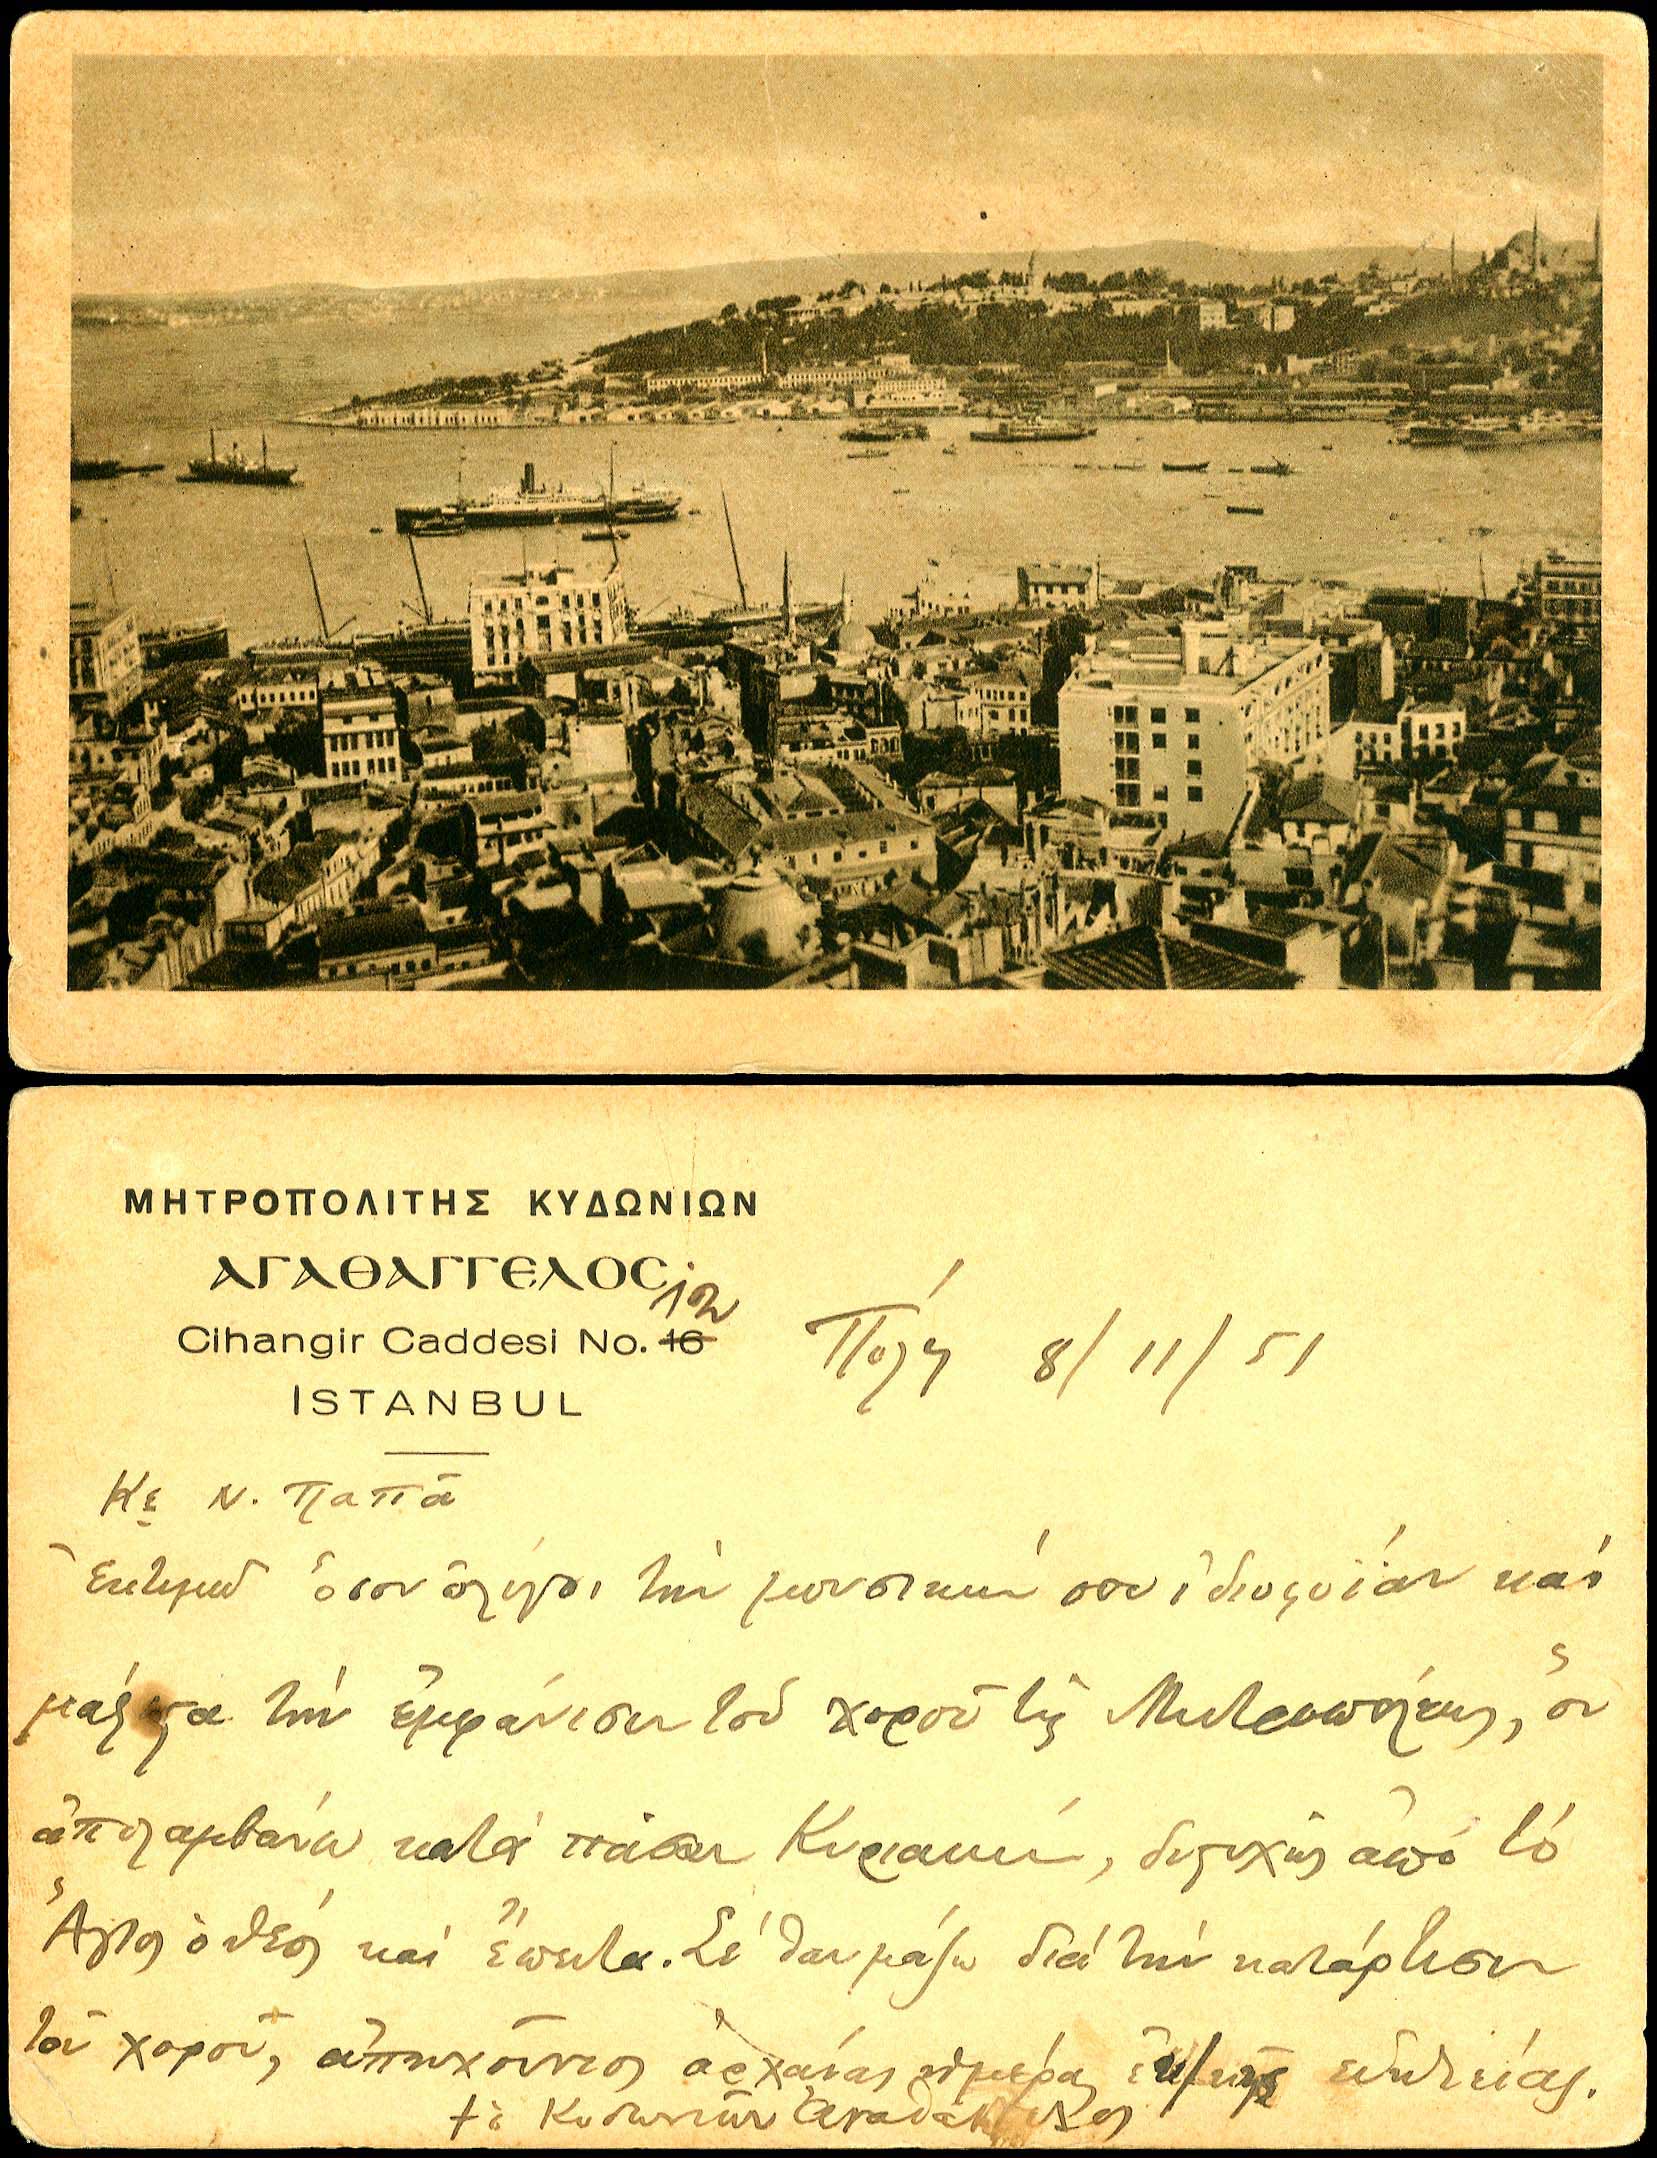 ΜΗΤΡΟΠΟΛΙΤΗΣ ΚΥΔΩΝΙΩΝ
ΑΓΑΘΑΓΓΕΛΟС
Cihangir Caddesi No. 16
ISTANBUL
Πόλη 8/11/51
Κε Ν. Παπᾶ
Ἐκτιμῶ ὅσον ὀλίγοι τὴν μουσικήν σου ἰδιοφυΐαν καὶ
μάλιστα τὴν ἐμφάνισιν τοῦ χοροῦ τῆς Μητροπόλεως, ὃν
ἀπολαμβάνω κατὰ πᾶσαν Κυριακήν, δυστυχῶς ἀπὸ τὸ
Ἅγιος ὁ Θεός καὶ ἔπειτα. Σὲ θαυμάζω διὰ τὴν κατάρτισιν
τοῦ χοροῦ, ἀπηχοῦντος ἀρχαίας ἡμέρας
† ὁ Κυδωνιῶν Ἀγαθάγγελος